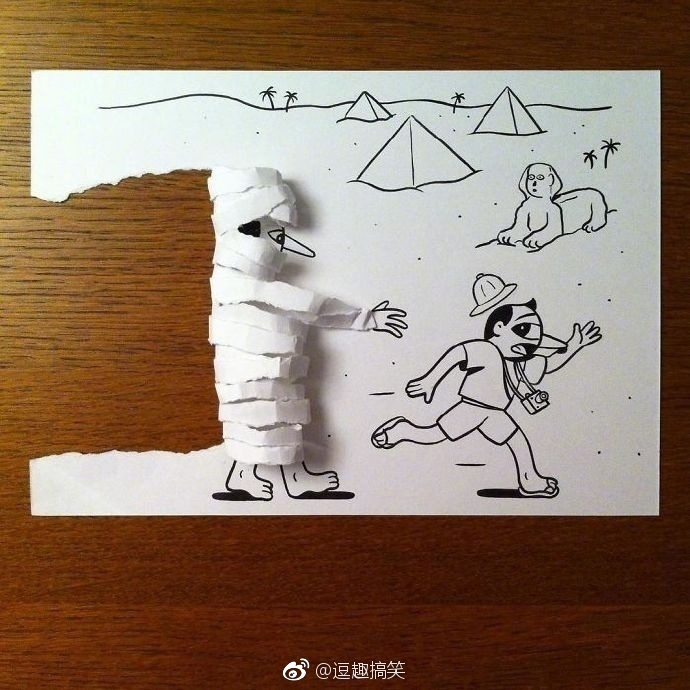 @逗趣搞笑